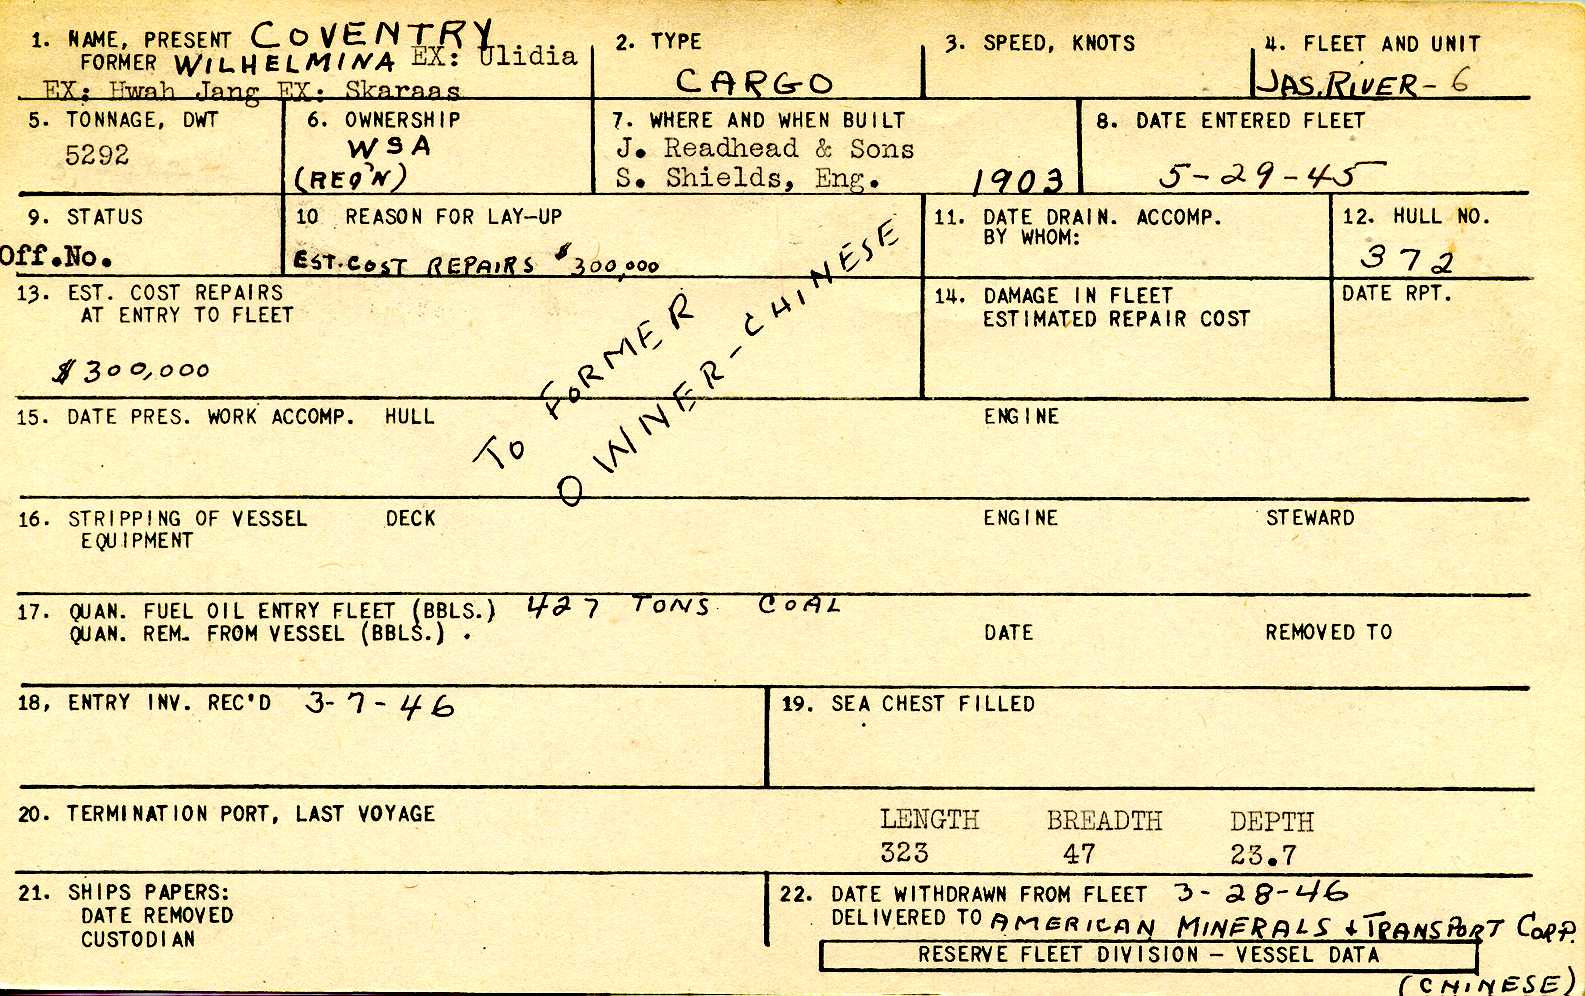 1. NAME, PRESENT COVENTRY
FORMER WILHELMINA EX: Ulidia
EX: Hwah Jang EX: Skaraas
2. TYPE
CARGO
3. SPEED, KNOTS
4. FLEET AND UNIT
JAS. RIVER - 6
5. TONNAGE, DWT
5292
6. OWNERSHIP
WSA
(REQ'N)
7. WHERE AND WHEN BUILT
J. Readhead & Sons
S. Shields, Eng. 1903
8. DATE ENTERED FLEET
5-29-45
9. STATUS
Off.No.
10 REASON FOR LAY-UP
EST. COST REPAIRS $300,000
11. DATE DRAIN. ACCOMP.
BY WHOM:
12. HULL NO.
372
13. EST. COST REPAIRS
AT ENTRY TO FLEET
$300,000
TO FORMER
OWNER-CHINESE
14. DAMAGE IN FLEET
ESTIMATED REPAIR COST
DATE RPT.
15. DATE PRES. WORK ACCOMP. HULL ENGINE
16. STRIPPING OF VESSEL DECK ENGINE STEWARD
EQUIPMENT
17. QUAN. FUEL OIL ENTRY FLEET (BBLS.) 427 TONS COAL
QUAN. REM. FROM VESSEL (BBLS.) . DATE REMOVED TO
18, ENTRY INV. REC'D 3-7-46
19. SEA CHEST FILLED
20. TERMINATION PORT, LAST VOYAGE
LENGTH BREADTH DEPTH
323 47 23.7
21. SHIPS PAPERS:
DATE REMOVED
CUSTODIAN
22. DATE WITHDRAWN FROM FLEET 3-28-46
DELIVERED TO AMERICAN MINERALS & TRANSPORT CORP.
RESERVE FLEET DIVISION - VESSEL DATA
(CHINESE)